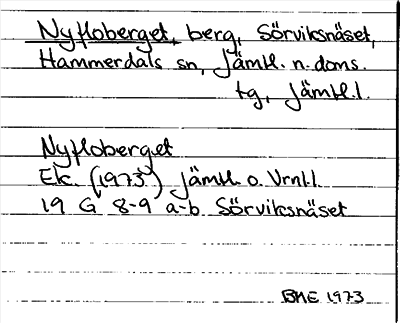 Nyfloberget, berg, Sörviksnäset,
Hammerdals sn, Jämtl. n. doms.
tg, Jämtl. l.
Nyfloberget
Ek. (1973) Jämtl. o. Vrnl.l.
19 G 8-9 a-b Sörviksnäset
BME 1973